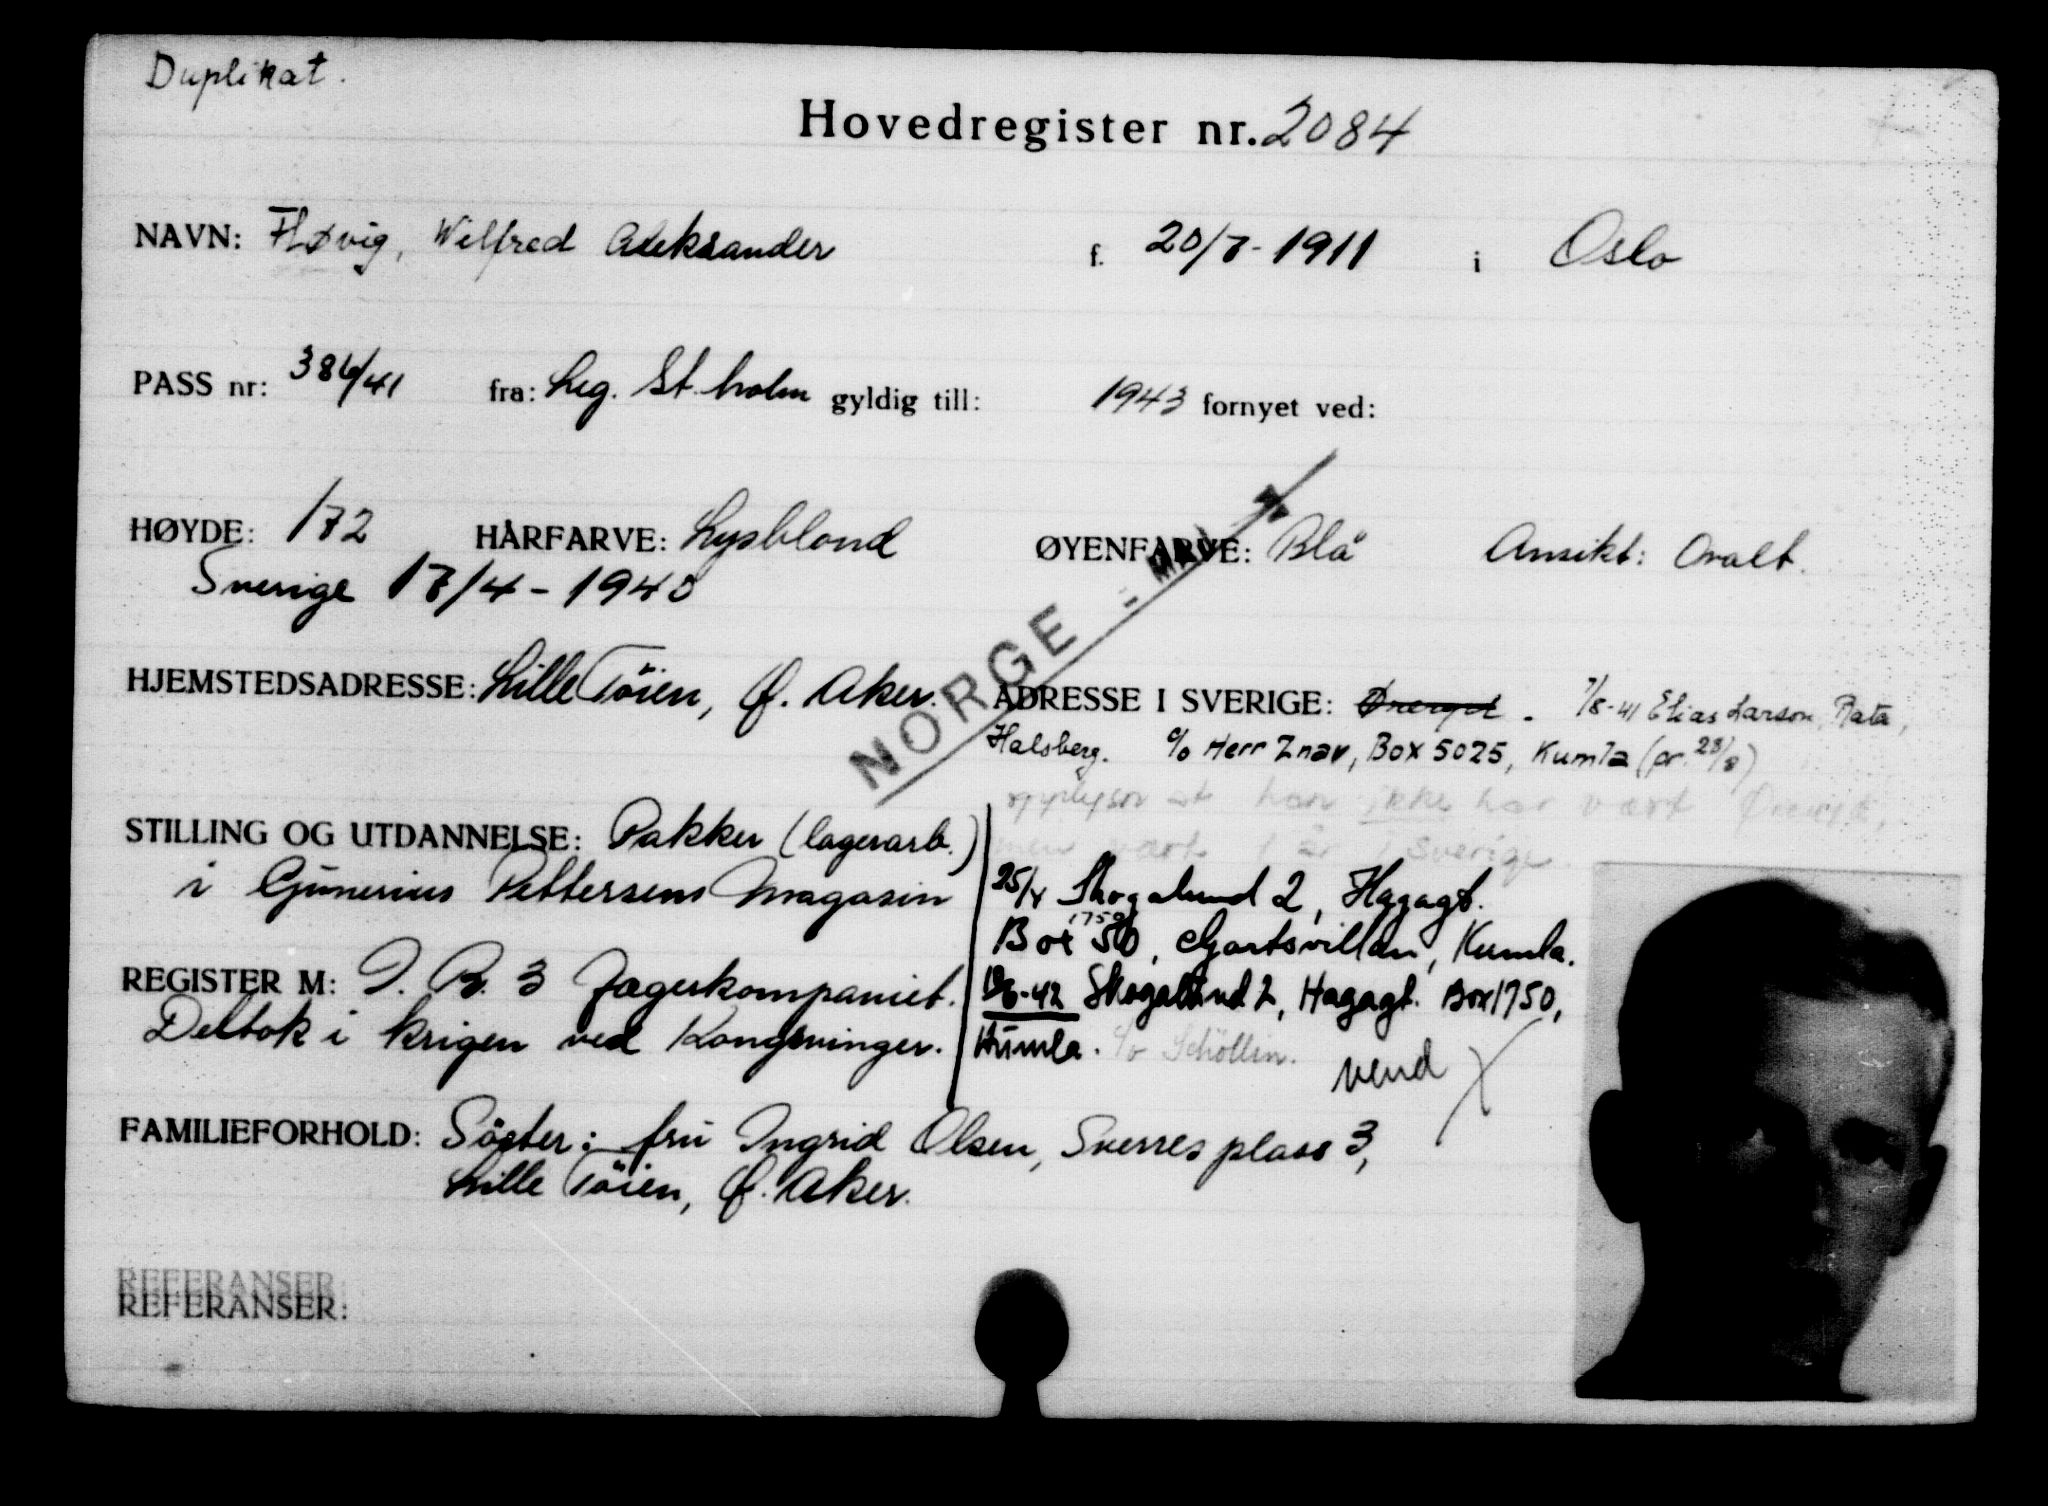 Duplikat.
Hovedregister nr. 2084
NAVN: Fløvig, Wilfred Aleksander f. 20/7-1911 i Oslo
PASS nr: 386/41 fra: Leg. St.holm gyldig till: 1943 fornyet ved:
HØYDE: 172 HÅRFARVE: Lysblond ØYENFARVE: Blå Ansikt: Ovalt.
Sverige 17/4-1940
NORGE
HJEMSTEDSADRESSE: Lille Töien, Ø. Aker. ADRESSE I SVERIGE: 7/8-41 Elias Larson, Rata,
Halsberg. c/o Herr Znav, Box 5025, Kumla (pr. 28/8)
opplyser at han ikke har vært
men vært 1 år i Sverige.
STILLING OG UTDANNELSE: Pakker (lagerarb.)
i Gunerius Pettersens Magasin
25/4 Skogalund 2, Hagagt.
Box 1750, Gjartsvillan, Kumla.
REGISTER M: I. R. 3 Jagerkompaniet.
Deltok i krigen ved Kongsvinger.
-42 Skogalund 2, Hagagt. Box 1750,
Kumla. c/o Schöllin.
vend
FAMILIEFORHOLD: Söster: fru Ingrid Olsen, Sverres plass 3,
Lille Töien, Ø. Aker.
REFERANSER
REFERANSER: